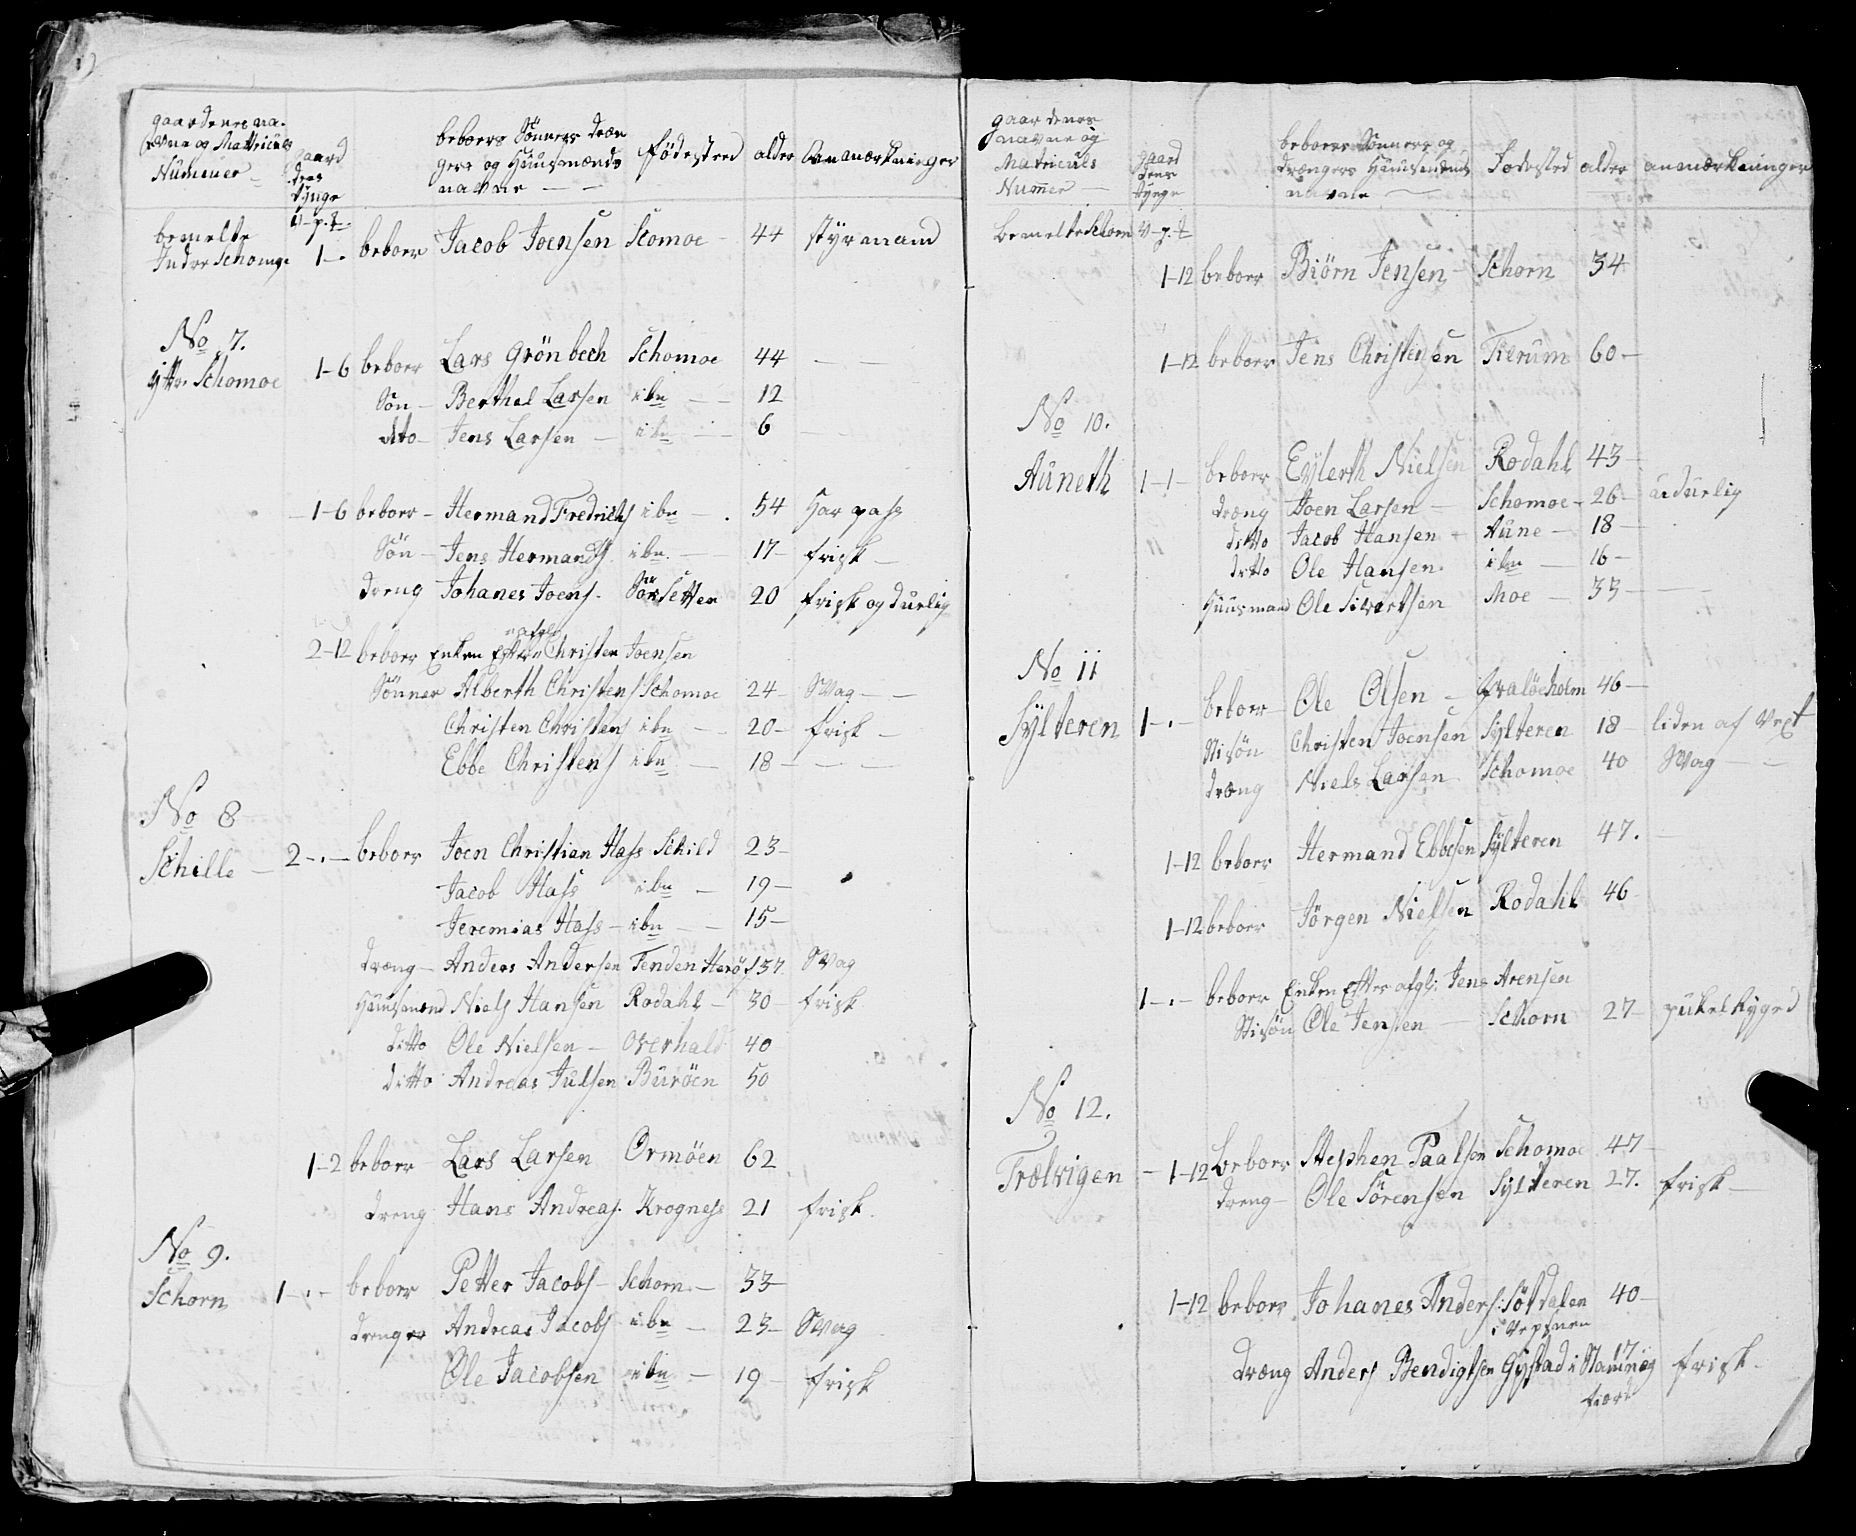 gaardenes na-
vne og Matriculs
Nummer
gaard
dens
tynge
v-p.#
beboers Sønners Dræn
gers og Huusmænds
navne
fødested
alder
Anmærkninger
bemelte
Indre Schomoe 1-. beboer Jacob Joensen Scomoe 44 styrmand
No 7.
ytter Schomoe 1-6 beboer Lars Grönbech Schomoe 44
Søn Berthel Larsen ibn 12
dto Jens Larsen ibn 6
1-6 beboer Hermand Fredrichs ibn 54 Har pass
Søn Jens Hermands ibn 17 frisk
Dreng Johanes Joens. Sörsetter 20 frisk og durlig
2-12 beboer Enken Efter afgl Christen Joensen
Sønner Alberth Christens Schomoe 24 Swag
Christen Christens ibn 20 frisk
Ebbe Christens ibn 18
No 8
Schille 2-.- beboer Joen Christian Hass Schild 23
Jacob Hass ibn 19
Jeremias Hass ibn 15
Dræng Anders Andersen Tenden Herö 37 Swag
Huusmend Niels Hansen Rodahl 30 frisk
ditto Ole Nielsen Overhald 40
ditto Andreas Julsen Buröen 50
1-2 beboer Lars Larsen Ormöen 62
Dreng Hans Andreas. Krogness 21 frisk.
No 9.
Schorn 1-.- beboer Petter Jacobs Schorn 33
Drenger Andreas Jacobs ibn 23 Swag
Ole Jacobsen ibn 19 frisk
gaardenes
navne og
Matriculs
Nummer
gaard
dens
tynge
beboers Sønners og
drængers Huusmends
navne
Fødested
alder
anmærkninger
bemelte Schorn v-p.#
1-12 beboer Biörn Jensen Schorn 34
1-12 beboer Jens Christensen Tierum 60
No 10.
Auneth 1-1- beboer Eylerth Nielsen Rodahl 43
Dræng Joen Larsen Schomoe 26 udurlig
ditto Jacob Hansen Aune 18
ditto Ole Hansen ibn 16
Huusmand Ole Siwertsen Moe 33
No 11
Sylteren 1-.- beboer Ole Olsen 46
Stisön Christen Joensen Sylteren 18 liden af Vext
Dræng Niels Larsen Schomoe 40 Swag
1-12 beboer Hermand Ebbesen Sylteren 47.
1-12 beboer Jörgen Nielsen Rodahl 46
1-.- beboer Enken Efter afgl: Jens Arensen
Stisön Ole Jensen Schorn 27 pukelrygged
No 12.
Trælvigen 1-12 beboer Stephen Paalsen Schomoe 47
Dreng Ole Sörensen Sylteren 27. frisk
1-12 beboer Johanes Anders: Sötdalen 40
i Vepsnen
Dræng Anders Bendigtsen Gystad i Stamnæs 17 frisk
fiord